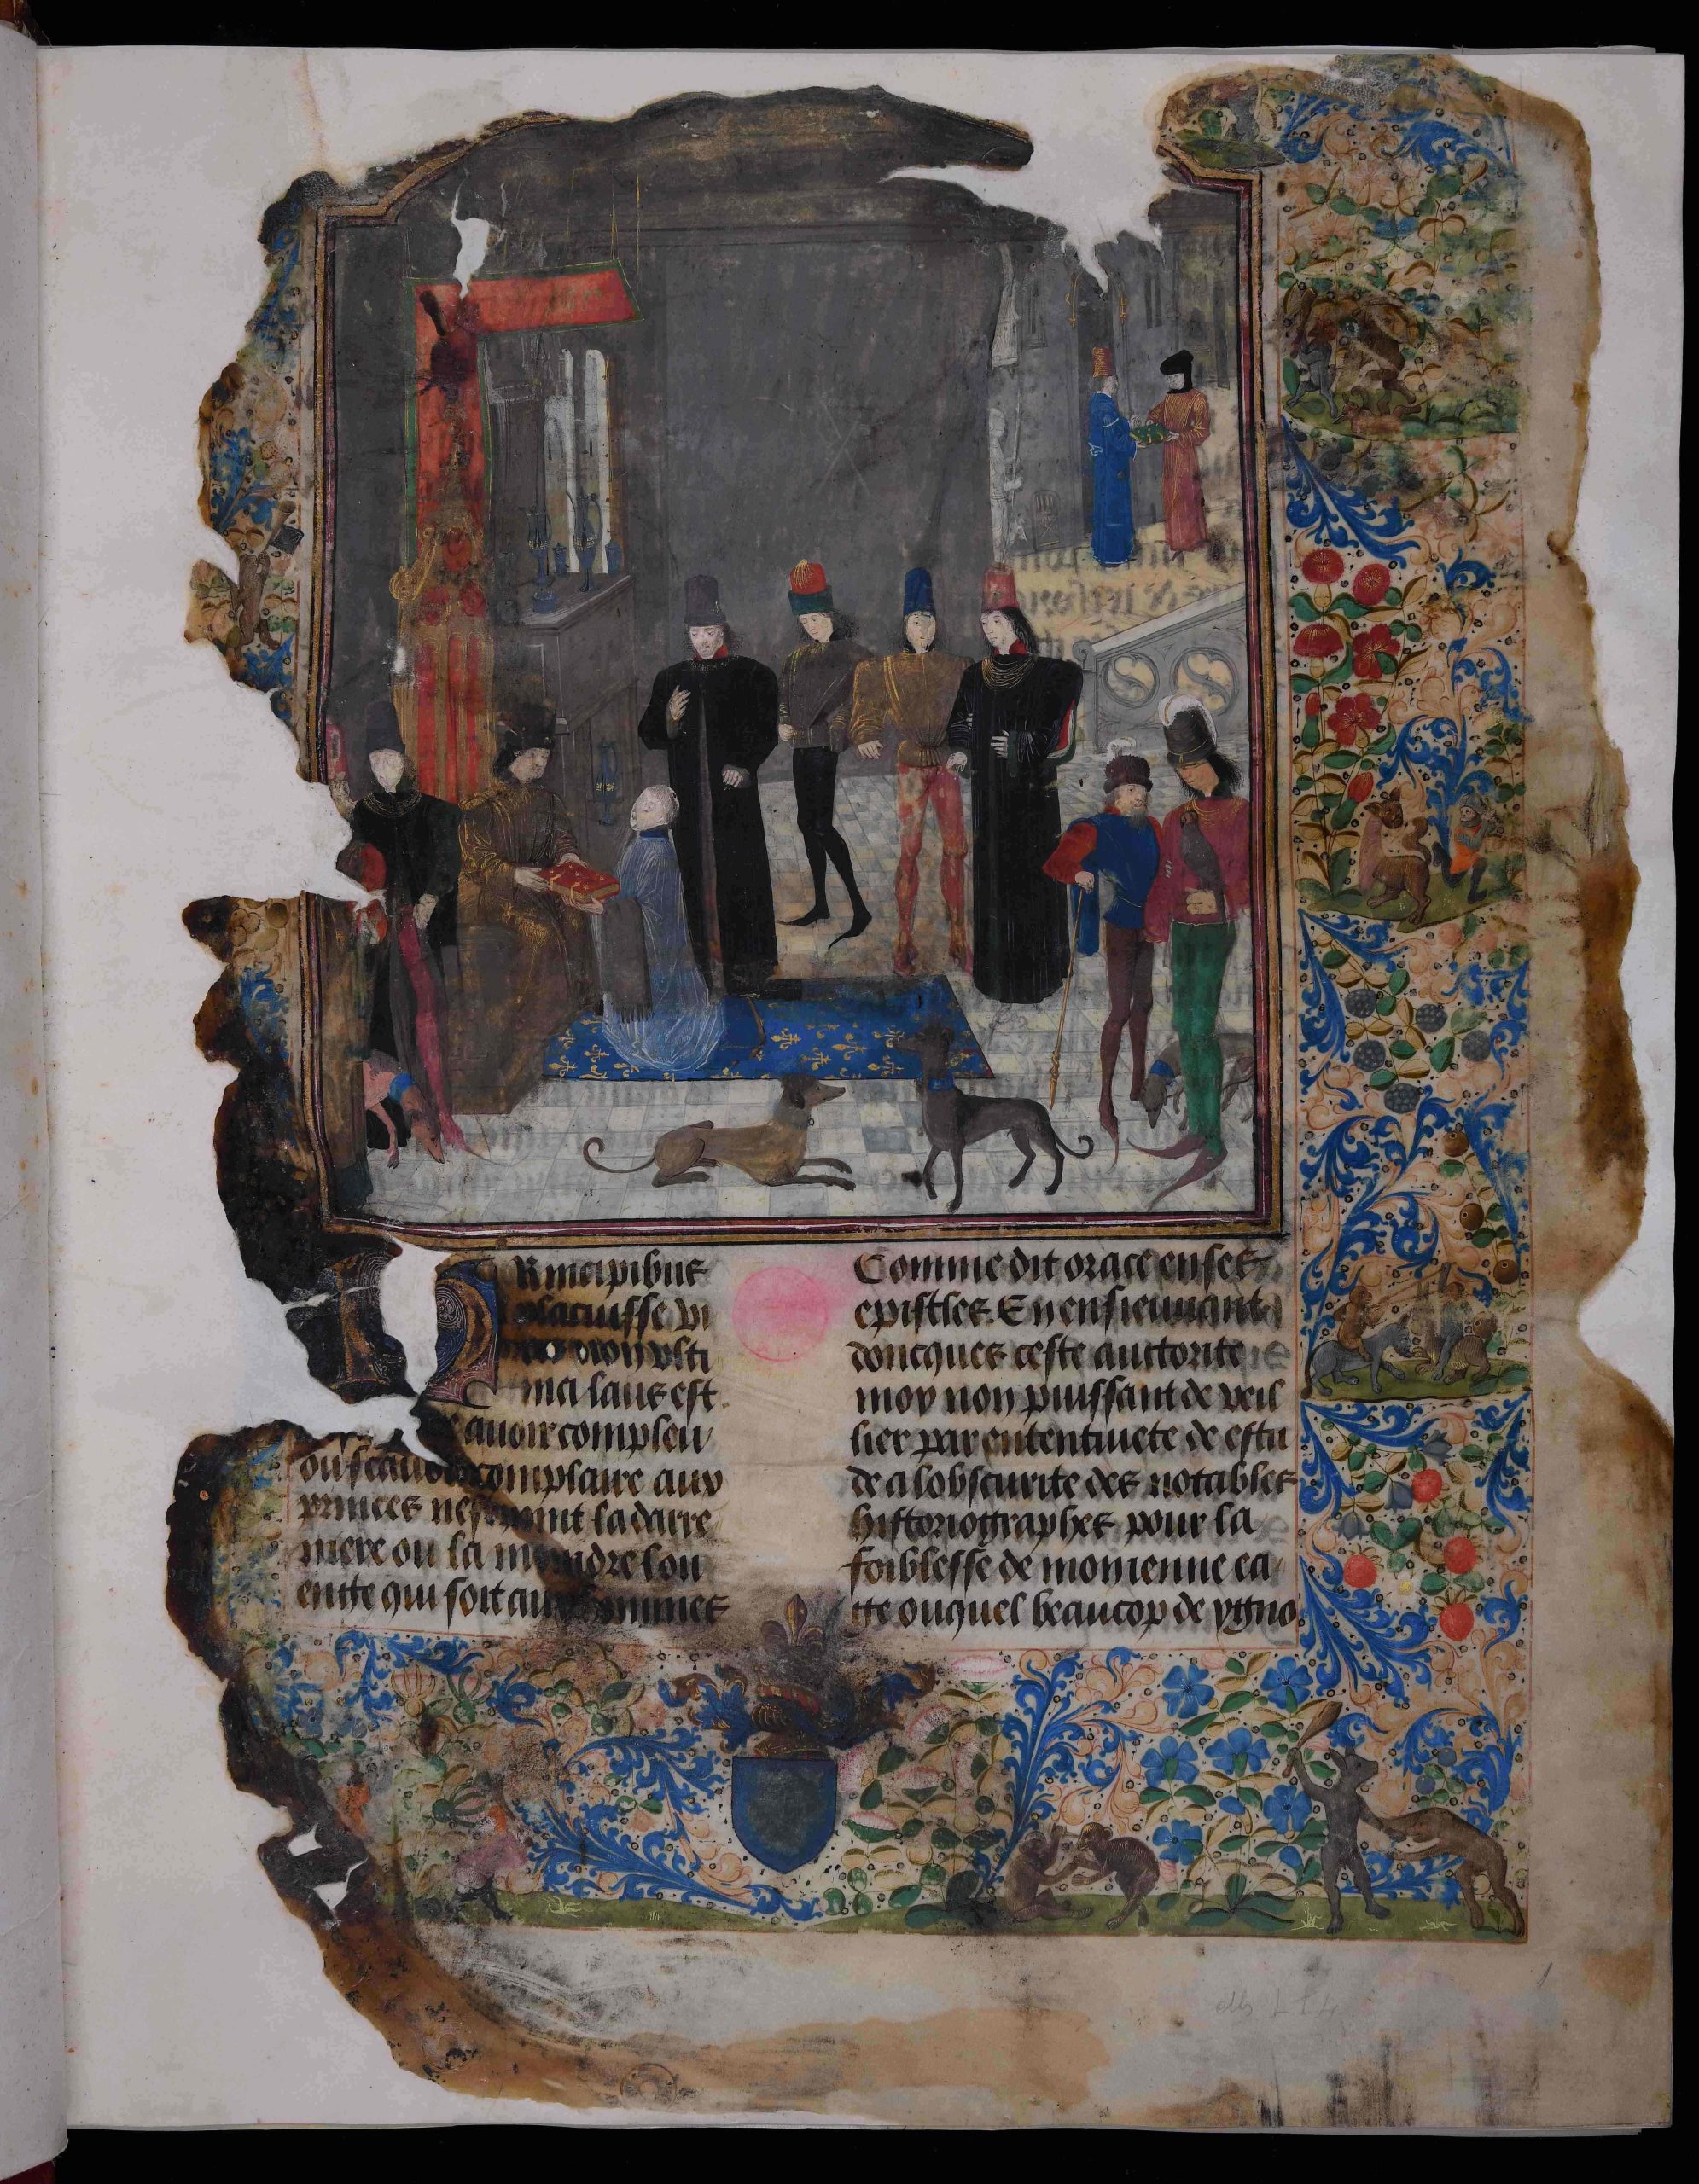 Rincipibus
placuisse vi
ris non vlti
ma laus est.
auoir compleu
ou scauoir complaire aux
princes nest point la darre
niere ou la moindre lou
enge qui soit aux hommes
Comme dit orace en ses
epistles. En ensieuuant
doncques ceste auttorite
moy non puissant de veil
lier par ententiuete de estu
de a lobscurite des notables
historiographes pour la
foiblesse de mon ienne ea
ge ouquel beaucop de ygno
1